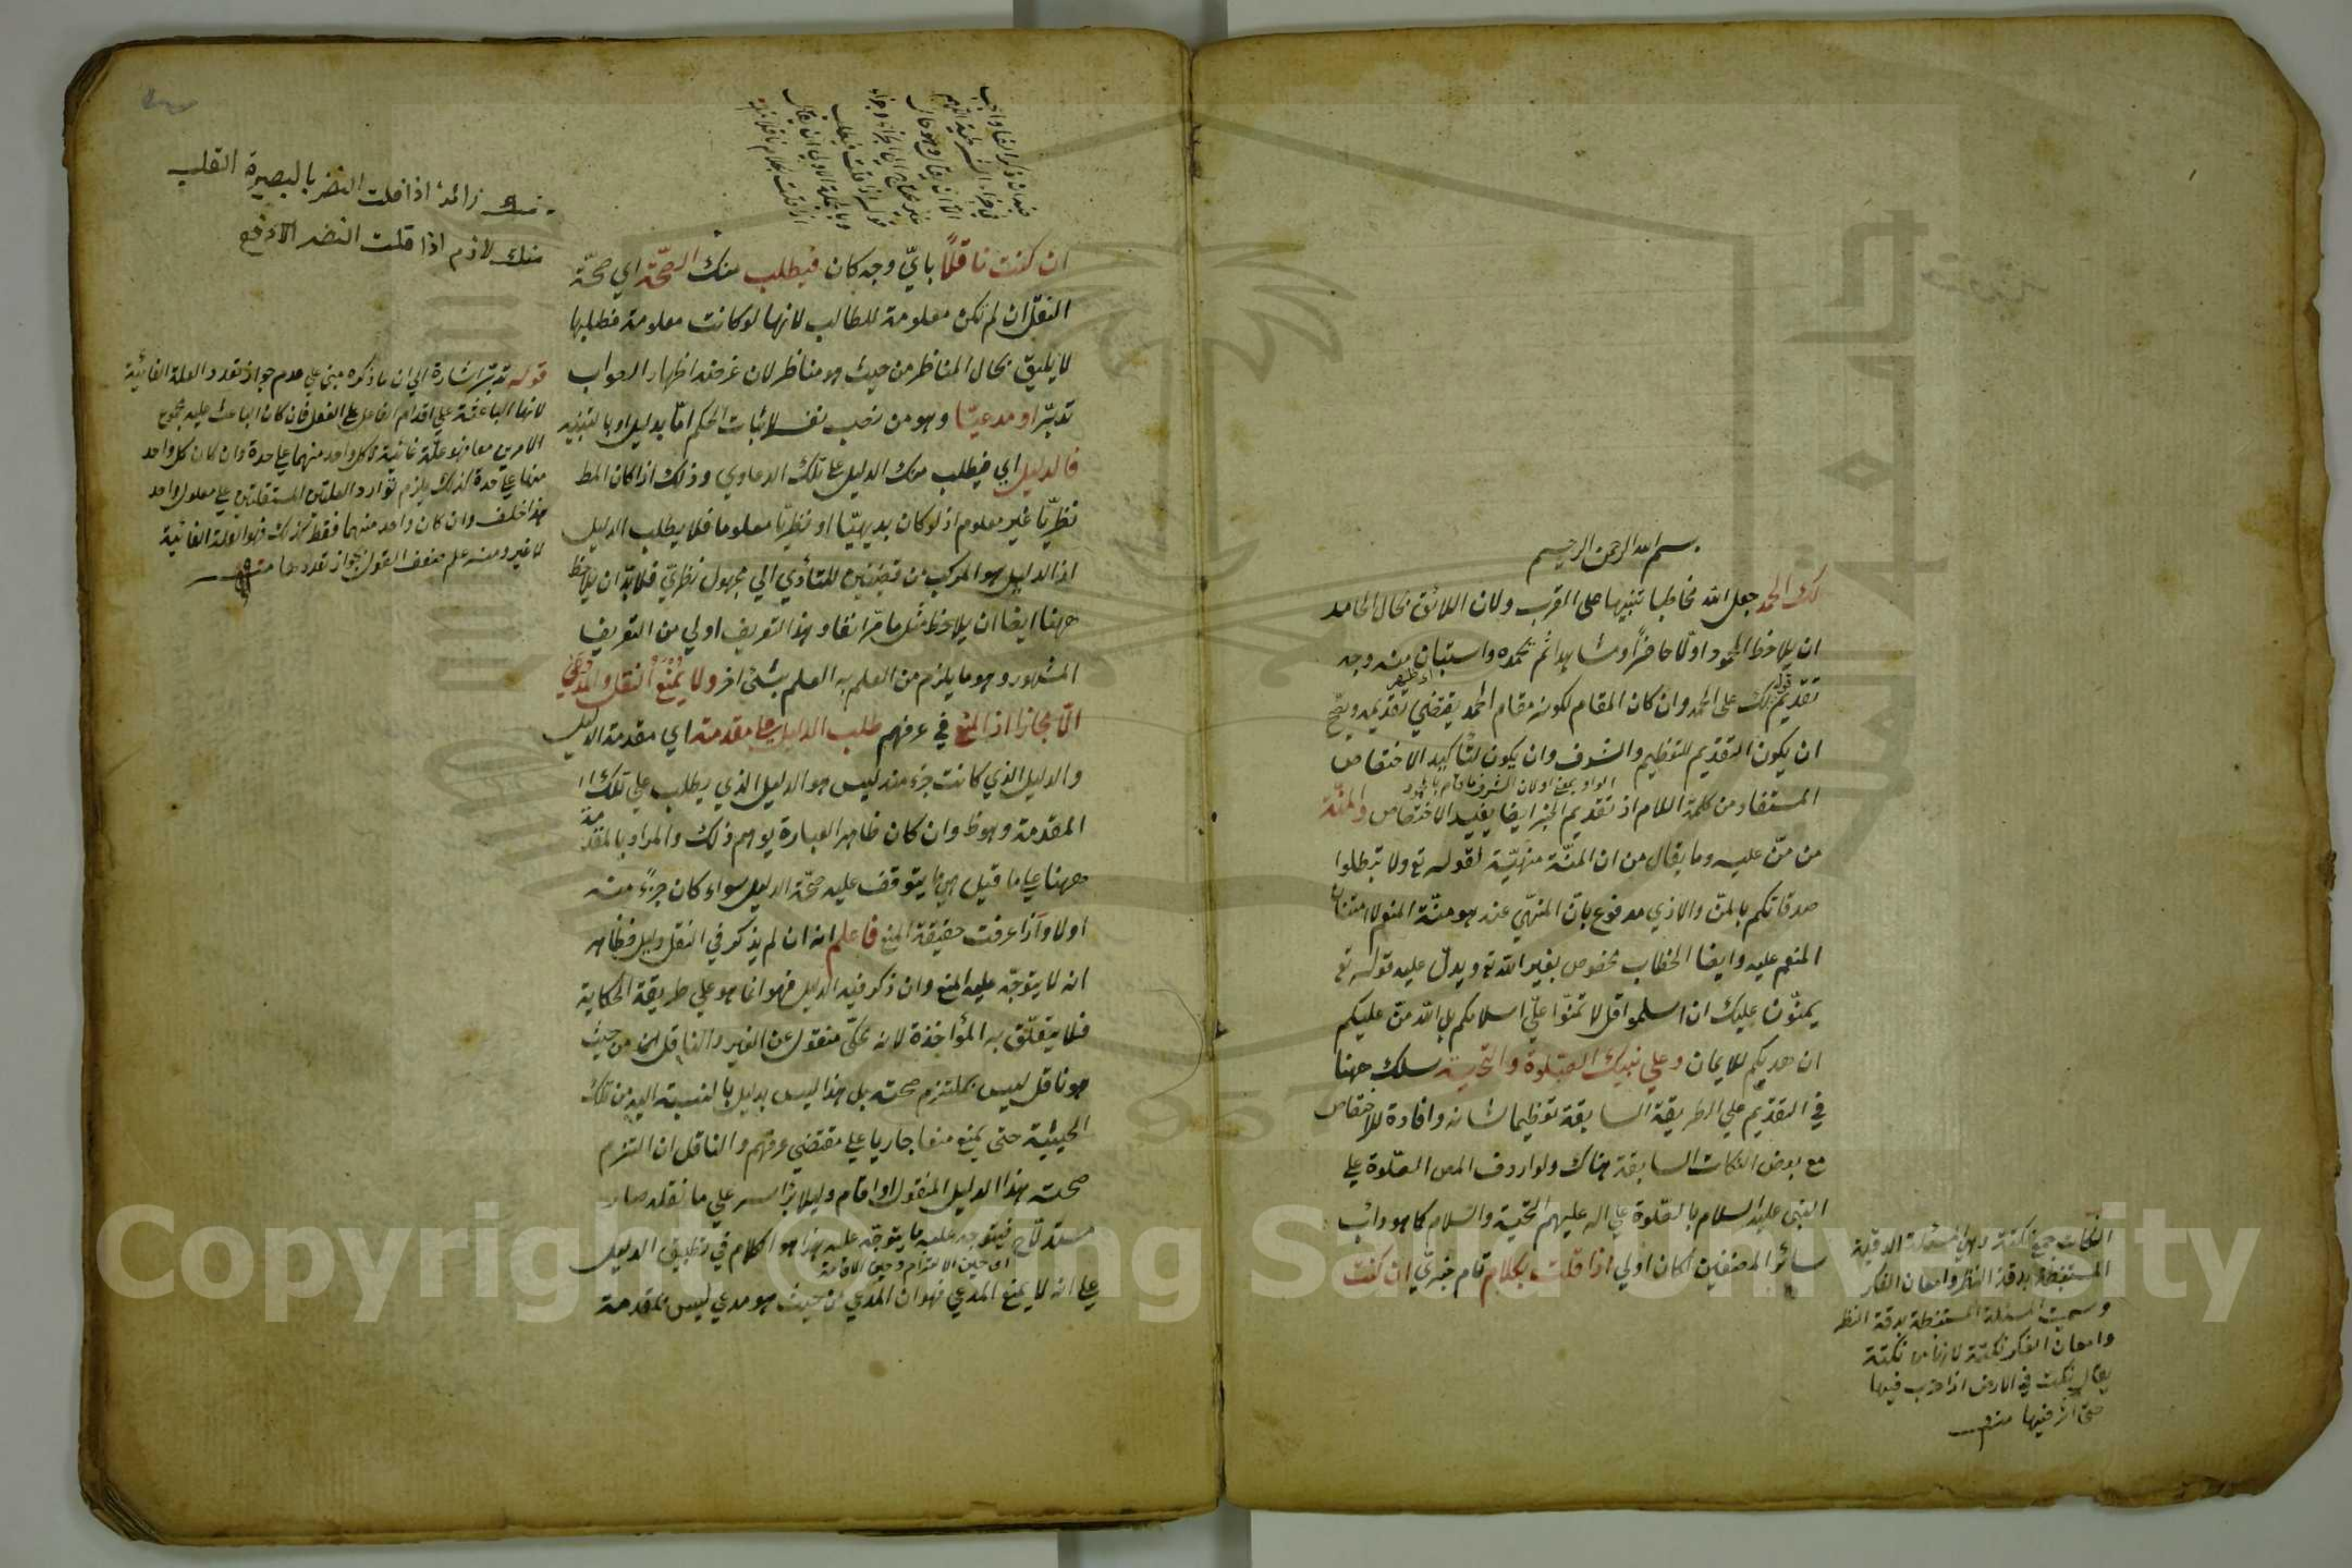 بسم الله الرحمن الرحيم
لك الحمد جعل الله مخاطبا تنبيها على القرب ولان اللائق بحال الحامد
ان يلاحظ المحمود اولا حاضرا ومشاهدا ثم يحمده واستبان منه وجه
تقديم قوله لك على الحمد وان كان المقام لكونه مقام الحمد يقتضي تقديمه ويصح
ان يكون التقديم للتعظيم والشرف وان يكون لتأكيد الاختصاص
المستفاد من كلمة اللام اذ تقديم الخبر ايضا يفيد الاختصاص والمنة
من منّ عليه وما يقال من ان المنّة منهيّة لقوله تع ولا تبطلوا
صدقاتكم بالمنّ والاذي مدفوع بانّ المنهيّ عنه هو منّة المنعم لامتنان
المنعم عليه وايضا الخطاب مخصوص بغير الله تع ويدلّ عليه قوله تع
يمنّون عليك ان اسلموا قل لا تمنّوا عليّ اسلامكم بل الله يمنّ عليكم
ان هديكم للايمان وعلي نبيك الصّلوة والتحيّة سلك ههنا
في التقديم علي الطريقة السابقة تعظيما لشانه وافادة للاختصاص
مع بعض النكات السابقة هناك ولو اردف المص الصّلوة علي
النبي عليه السلام بالصّلوة علي اله عليهم التحية والسّلام كما هو دأب
سائر المصنفين لكان اولي اذا قلت بكلام تام خبريّ ان كنت
النكات جمع نكتة وهي المسئلة الدقيقة
المستنبطة بدقة النظر وامعان الفكر
وسميت المسئلة المستنبطة بدقة النظر
وامعان الفكر نكتة لانها من نكتة
يقال نكت في الارض اذا ضرب فيها
حتى اثر فيها منه
ان كنت ناقلًا بايّ وجه كان فيطلب منك الصّحّة اي صحّة
النقل ان لم تكن معلومة للطالب لانها لو كانت معلومة فطلبها
لا يليق بحال المناظر من حيث هو مناظر لان غرضه اظهار الصواب
تدبّر او مدعيّا وهو من نصب نفسه لاثبات الحكم امّا بدليل او بالتنبيه
فالدليل اي فيطلب منك الدليل علي تلك الدعاوي وذلك اذا كان المط
نظريّا غير معلوم اذ لو كان بديهيّا او نظريّا معلوما فلا يطلب الدليل
اذ الدليل هو المركب من قضيتين للتأدي الي مجهول نظريّ فلا بدّ ان يلاحظ
ههنا ايضا ان يلاحظ مثل ما مرّ انفا وهذا التعريف اولي من التعريف
المشهور وهو ما يلزم من العلم به العلم بشئ اخر ولا يمنع النقل والمدعي
الّا مجازا اذ المنع في عرفهم طلب الدليل علي مقدمة اي مقدمة الدليل
والدليل الذي كانت جزء منه ليس هو الدليل الذي يطلب علي تلك
المقدمة وهو ظ وان كان ظاهر العبارة يوهم ذلك والمراد بالمقدمة
ههنا علي ما قيل هي ما يتوقف عليه صحّة الدليل سواء كان جزءً منه
اولا واذا عرفت حقيقة المنع فاعلم انه ان لم يذكر في النقل دليل فظاهر
انه لا يتوجّه عليه المنع وان ذكر فيه الدليل فهو انما هو علي طريقة الحكاية
فلا يتعلّق به المؤاخذة لانه محكيّ منقول عن الغير والناقل من حيث
هو ناقل ليس بملتزم صحته بل هذا ليس بدليل بالنسبة اليه من تلك
الحيثية حتى يمنع منعا جاريا علي مقتضي عرفهم والناقل ان التزم
صحت هذا الدليل المنقول او اقام دليلا برأسه علي ما نقله صار
مستدلّا ح فيتوجه عليه ما يتوجّه عليه هذا هو الكلام في تطبيق الدليل
اي حين الالتزام وحين الاقامة
علي انه لا يمنع المدعي فهو ان المدّعي من حيث هو مدعي ليس بمقدمة
منك زائدة اذا قلت النضر بالبصيرة القلب
منك لازم اذا قلت النضر
قوله تدبّر اشارة الي ان ما ذكره مبني علي عدم جواز تعدد العلة الغائية
لانها الباعثة علي اقدام الفاعل علي الفعل فان كان الباعث عليه مجموع
الامرين معا فهو علّة غائية لا كل واحد منهما علي حدة وان كان كل واحد
منهما علي حدة كذلك يلزم توارد العلتين المستقلتين علي معلول واحد
هذا خلف وان كان واحد منهما فقط كذلك فهو العلة الغائية
لا غير ومنه علم ضعف القول بجواز تعددها منه